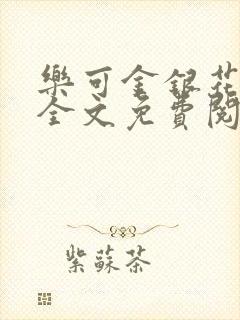 樂可金銀花
全文免費閱
紫蘇茶